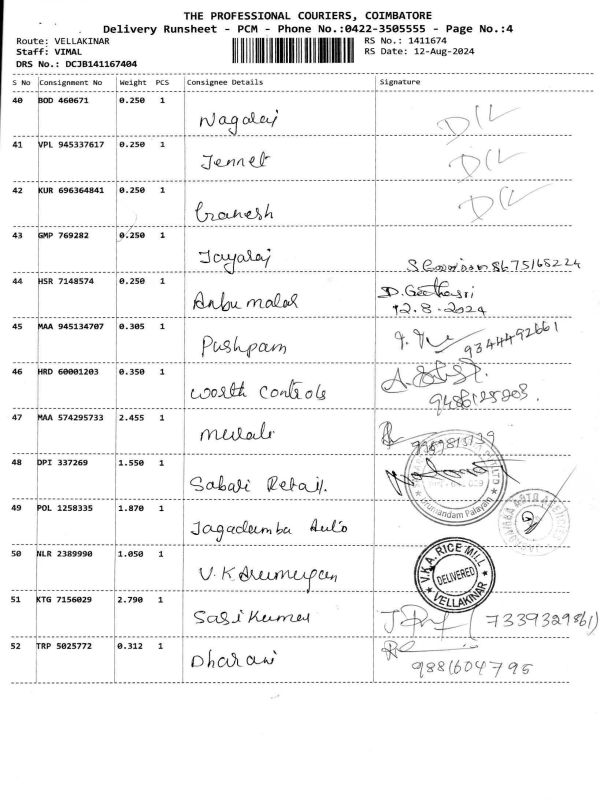 THE PROFESSIONAL COURIERS, COIMBATORE
Delivery Runsheet - PCM - Phone No.:0422-3505555 - Page No.:4
Route: VELLAKINAR RS No.: 1411674
Staff: VIMAL RS Date: 12-Aug-2024
DRS No.: DCJB141167404
S No Consignment No Weight PCS Consignee Details Signature
40 BOD 460671 0.250 1
Nagaraj D/L
41 VPL 945337617 0.250 1
Jennet D/L
42 KUR 696364841 0.250 1
Ganesh D/L
43 GMP 769282 0.250 1
Jayaraj 8675168224
44 HSR 7148574 0.250 1 D. Geethasri
Anbu malar 12.8.2024
45 MAA 945134707 0.305 1
Pushpam 9344492661
46 HRD 60001203 0.350 1
Worth Controls
47 MAA 574295733 2.455 1
Murali
48 DPI 337269 1.550 1
Sabari Retail.
49 POL 1258335 1.870 1
Jagadamba Auto
50 NLR 2389990 1.050 1 V.K.A. RICE MILL
V.K Arumugan DELIVERED
VELLAKINAR
51 KTG 7156029 2.790 1
Sasikumar 7339329861)
52 TRP 5025772 0.312 1
Dharani 9881604795